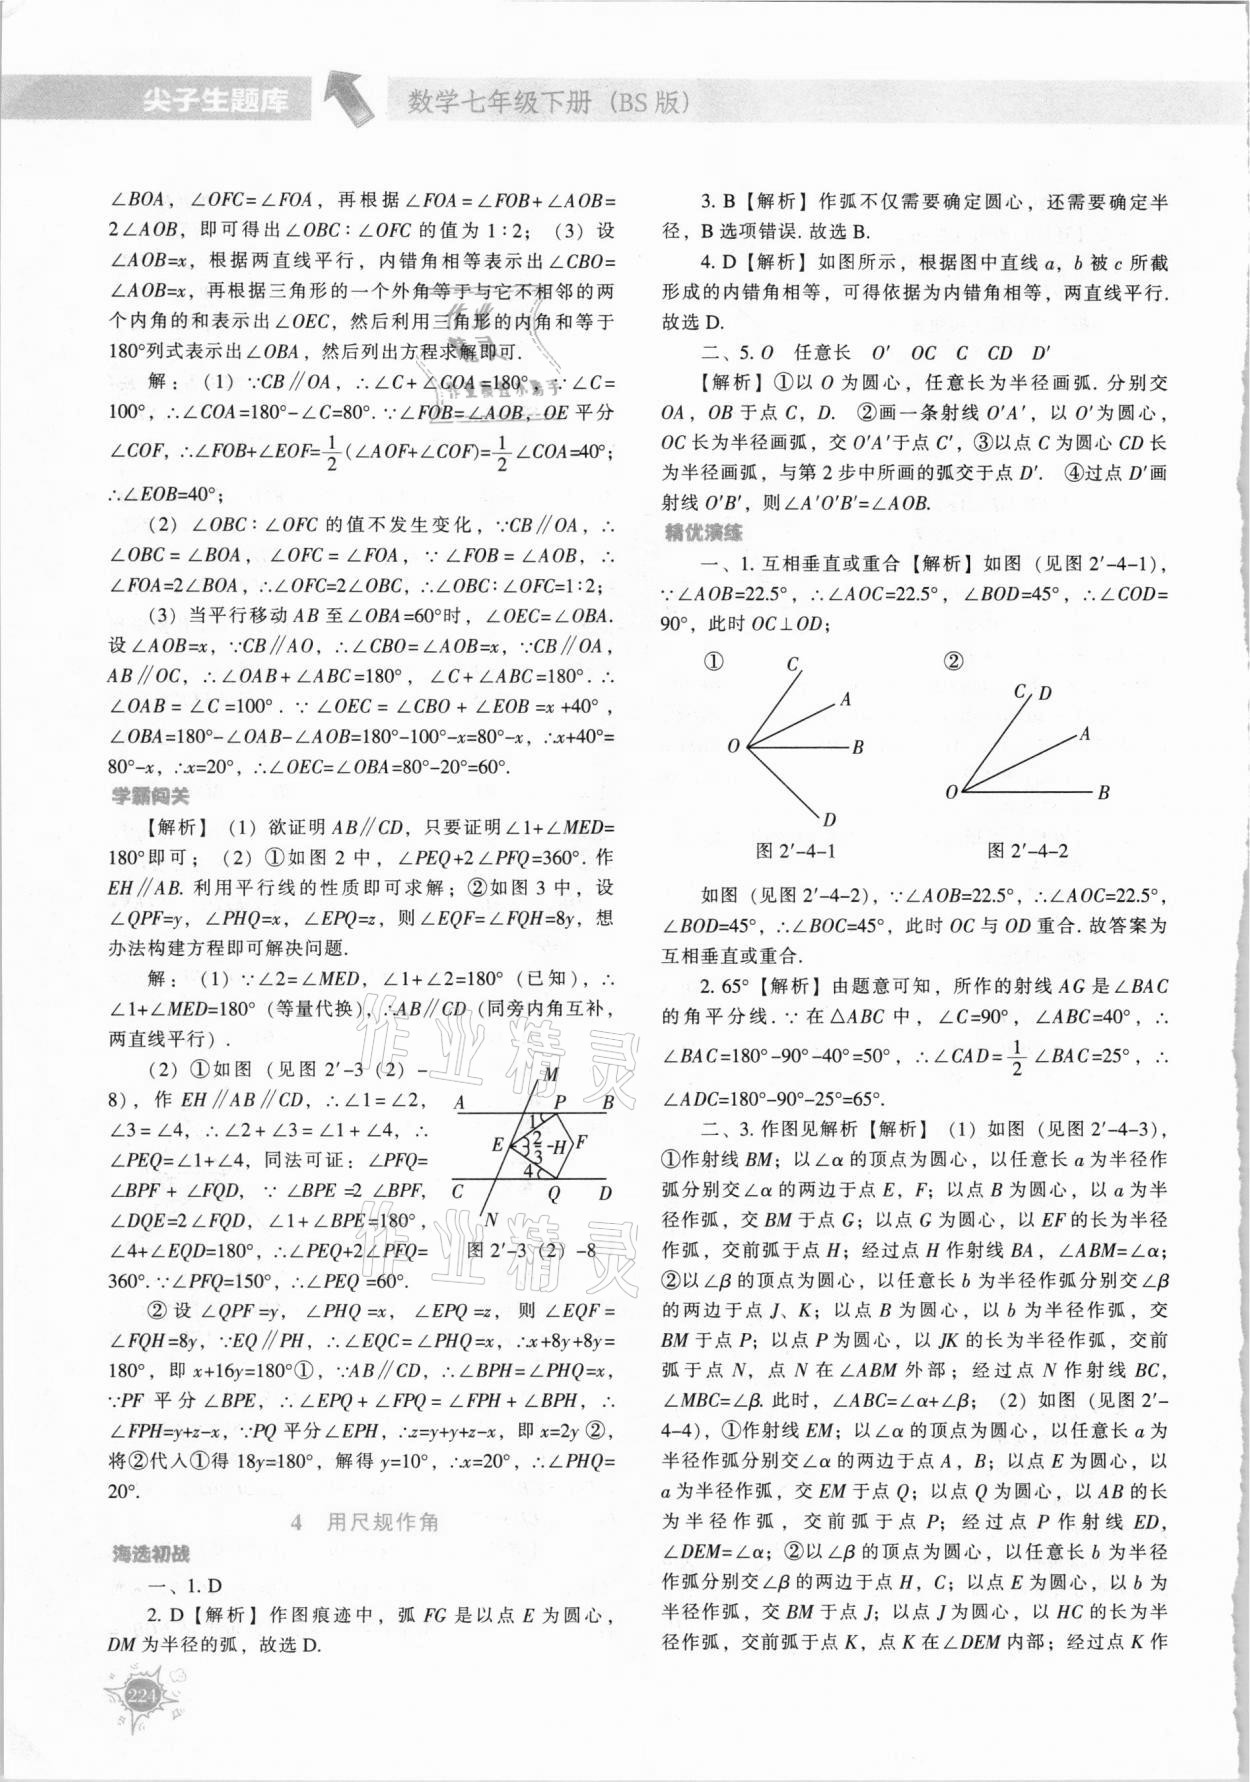 尖子生题库
数学七年级下册（BS 版）
∠BOA，∠OFC=∠FOA，再根据∠FOA=∠FOB+∠AOB=
2∠AOB，即可得出∠OBC∶∠OFC 的值为 1∶2；（3）设
∠AOB=x，根据两直线平行，内错角相等表示出∠CBO=
∠AOB=x，再根据三角形的一个外角等于与它不相邻的两
个内角的和表示出∠OEC，然后利用三角形的内角和等于
180°列式表示出∠OBA，然后列出方程求解即可.
解：（1）∵CB∥OA，∴∠C+∠COA=180°，∵∠C=
100°，∴∠COA=180°-∠C=80°. ∵∠FOB=∠AOB，OE 平分
∠COF，∴∠FOB+∠EOF=1/2(∠AOF+∠COF)=1/2∠COA=40°；
∴∠EOB=40°；
（2）∠OBC∶∠OFC 的值不发生变化，∵CB∥OA，∴
∠OBC=∠BOA，∠OFC=∠FOA，∵∠FOB=∠AOB，∴
∠FOA=2∠BOA，∴∠OFC=2∠OBC，∴∠OBC∶∠OFC=1∶2；
（3）当平行移动 AB 至∠OBA=60°时，∠OEC=∠OBA.
设∠AOB=x，∵CB∥AO，∴∠CBO=∠AOB=x，∵CB∥OA，
AB∥OC，∴∠OAB+∠ABC=180°，∠C+∠ABC=180°. ∴
∠OAB=∠C=100°. ∵∠OEC=∠CBO+∠EOB=x+40°，
∠OBA=180°-∠OAB-∠AOB=180°-100°-x=80°-x，∴x+40°=
80°-x，∴x=20°，∴∠OEC=∠OBA=80°-20°=60°.
学霸闯关
【解析】（1）欲证明 AB∥CD，只要证明∠1+∠MED=
180°即可；（2）①如图 2 中，∠PEQ+2∠PFQ=360°. 作
EH∥AB. 利用平行线的性质即可求解；②如图 3 中，设
∠QPF=y，∠PHQ=x，∠EPQ=z，则∠EQF=∠FQH=8y，想
办法构建方程即可解决问题.
解：（1）∵∠2=∠MED，∠1+∠2=180°（已知），∴
∠1+∠MED=180°（等量代换），∴AB∥CD（同旁内角互补，
两直线平行）.
（2）①如图（见图 2′-3（2）-
8），作 EH∥AB∥CD，∴∠1=∠2，
∠3=∠4，∴∠2+∠3=∠1+∠4，∴
∠PEQ=∠1+∠4，同法可证：∠PFQ=
∠BPF+∠FQD，∵∠BPE=2∠BPF，
∠DQE=2∠FQD，∠1+∠BPE=180°，
∠4+∠EQD=180°，∴∠PEQ+2∠PFQ=
360°. ∵∠PFQ=150°，∴∠PEQ=60°.
M
A P B
1
E 2 H F
3
4
C Q D
N
图 2′-3（2）-8
②设∠QPF=y，∠PHQ=x，∠EPQ=z，则∠EQF=
∠FQH=8y，∵EQ∥PH，∴∠EQC=∠PHQ=x，∴x+8y+8y=
180°，即 x+16y=180°①，∵AB∥CD，∴∠BPH=∠PHQ=x，
∵PF 平分∠BPE，∴∠EPQ+∠FPQ=∠FPH+∠BPH，∴
∠FPH=y+z-x，∵PQ 平分∠EPH，∴z=y+y+z-x，即 x=2y ②，
将②代入①得 18y=180°，解得 y=10°，∴x=20°，∴∠PHQ=
20°.
4 用尺规作角
海选初战
一、1. D
2. D【解析】作图痕迹中，弧 FG 是以点 E 为圆心，
DM 为半径的弧，故选 D.
224
3. B【解析】作弧不仅需要确定圆心，还需要确定半
径，B 选项错误. 故选 B.
4. D【解析】如图所示，根据图中直线 a，b 被 c 所截
形成的内错角相等，可得依据为内错角相等，两直线平行.
故选 D.
二、5. O 任意长 O′ OC C CD D′
【解析】①以 O 为圆心，任意长为半径画弧. 分别交
OA，OB 于点 C，D. ②画一条射线 O′A′，以 O′为圆心，
OC 长为半径画弧，交 O′A′于点 C′，③以点 C 为圆心 CD 长
为半径画弧，与第 2 步中所画的弧交于点 D′. ④过点 D′画
射线 O′B′，则∠A′O′B′=∠AOB.
精优演练
一、1. 互相垂直或重合【解析】如图（见图 2′-4-1），
∵∠AOB=22.5°，∴∠AOC=22.5°，∠BOD=45°，∴∠COD=
90°，此时 OC⊥OD；
① C A O B D
图 2′-4-1
② C D A O B
图 2′-4-2
如图（见图 2′-4-2），∵∠AOB=22.5°，∴∠AOC=22.5°，
∠BOD=45°，∴∠BOC=45°，此时 OC 与 OD 重合. 故答案为
互相垂直或重合.
2. 65°【解析】由题意可知，所作的射线 AG 是∠BAC
的角平分线. ∵在△ABC 中，∠C=90°，∠ABC=40°，∴
∠BAC=180°-90°-40°=50°，∴∠CAD=1/2∠BAC=25°，∴
∠ADC=180°-90°-25°=65°.
二、3. 作图见解析【解析】（1）如图（见图 2′-4-3），
①作射线 BM；以∠α的顶点为圆心，以任意长 a 为半径作
弧分别交∠α的两边于点 E，F；以点 B 为圆心，以 a 为半
径作弧，交 BM 于点 G；以点 G 为圆心，以 EF 的长为半径
作弧，交前弧于点 H；经过点 H 作射线 BA，∠ABM=∠α；
②以∠β的顶点为圆心，以任意长 b 为半径作弧分别交∠β
的两边于点 J、K；以点 B 为圆心，以 b 为半径作弧，交
BM 于点 P；以点 P 为圆心，以 JK 的长为半径作弧，交前
弧于点 N，点 N 在∠ABM 外部；经过点 N 作射线 BC，
∠MBC=∠β. 此时，∠ABC=∠α+∠β；（2）如图（见图 2′-
4-4），①作射线 EM；以∠α的顶点为圆心，以任意长 a 为
半径作弧分别交∠α的两边于点 A，B；以点 E 为圆心，以
a 为半径作弧，交 EM 于点 Q；以点 Q 为圆心，以 AB 的长
为半径作弧，交前弧于点 P；经过点 P 作射线 ED，
∠DEM=∠α；②以∠β的顶点为圆心，以任意长 b 为半径
作弧分别交∠β的两边于点 H，C；以点 E 为圆心，以 b 为
半径作弧，交 BM 于点 J；以点 J 为圆心，以 HC 的长为半
径作弧，交前弧于点 K，点 K 在∠DEM 内部；经过点 K 作
作业精灵
作业精灵